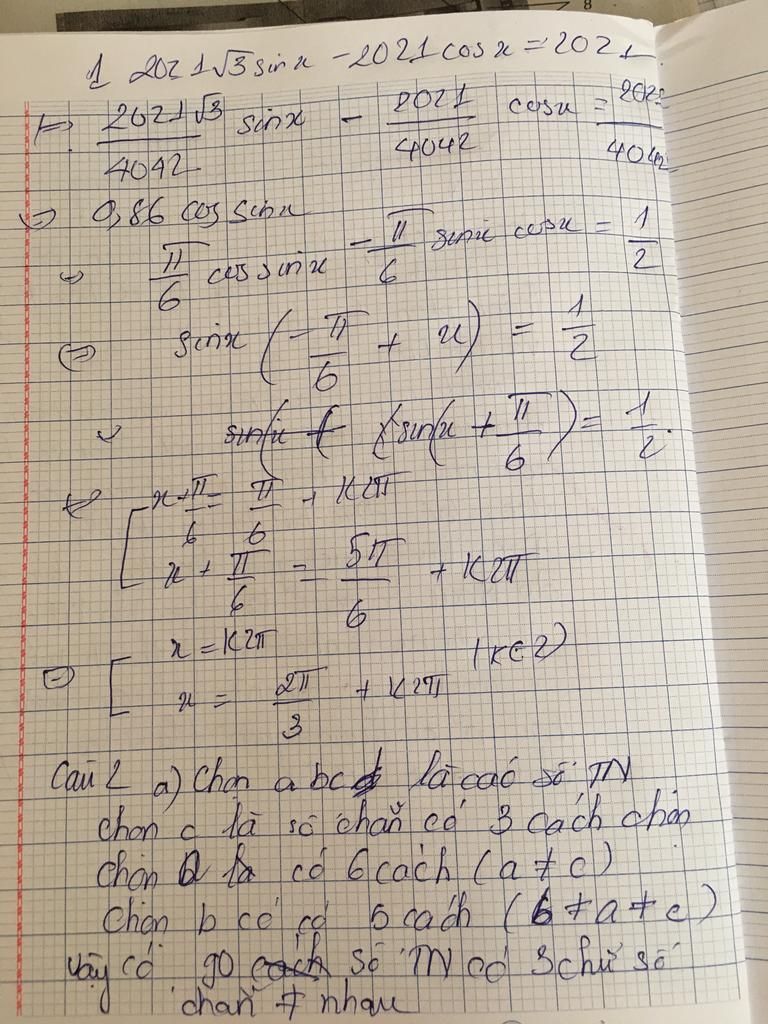 8
1 2021√3 sinx - 2021 cosx = 2021
⇔ 2021√3/4042 sinx - 2021/4042 cosx = 2021/4042
⇔ 0,86 cos sinx
⇔ π/6 cos sinx - π/6 sinx cosx = 1/2
⇔ sinx (-π/6 + x) = 1/2
sin(x + π/6) = 1/2
⇔ [ x + π/6 = π/6 + K2π
x + π/6 = 5π/6 + K2π
⇔ [ x = K2π
x = 2π/3 + K2π (K∈Z)
Câu 2 a) Chọn abc là các số TN
chọn c là số chẵn có 3 cách chọn
chọn a có 6 cách (a ≠ c)
chọn b có có 5 cách (b ≠ a ≠ c)
Vậy có 90 số TN có 3 chữ số
chẵn ≠ nhau